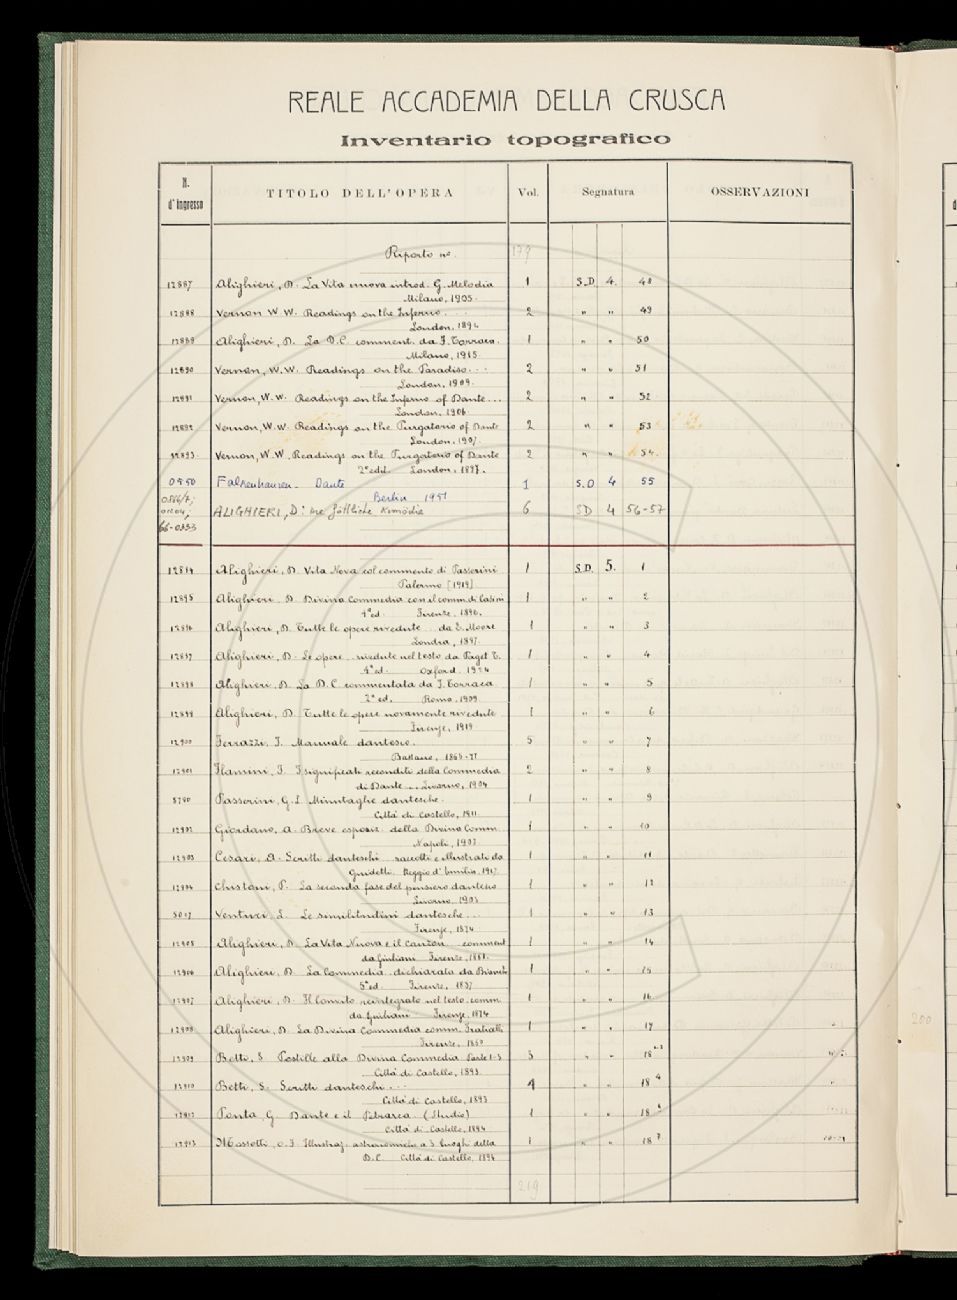 REALE ACCADEMIA DELLA CRUSCA
Inventario topografico
N. d'Ingresso TITOLO DELL'OPERA Vol. Segnatura OSSERVAZIONI
Riporto nº. 179
12887 Alighieri, D. La Vita nuova introd. G. Melodia 1 S.D 4. 48
Milano, 1905.
12888 Vernon W.W. Readings on the Inferno... 2 " " 49
London, 1894
12889 Alighieri, D. La D.C. comment. da F. Torraca. 1 " " 50
Milano, 1915.
12890 Vernon, W.W. Readings on the Paradiso... 2 " " 51
London, 1909.
12891 Vernon, W.W. Readings on the Inferno of Dante... 2 " " 52
London, 1906.
12892 Vernon, W.W. Readings on the Purgatorio of Dante 2 " " 53
London, 1907.
12893. Vernon, W.W. Readings on the Purgatorio of Dante 2 " " 54.
2ª edit. London, 1897.
0550 Falkenhausen - Dante 1 S.D 4 55
Berlin 1951
ALIGHIERI, D: Göttliche Komödie 6 SD 4 56-57
66-0333
12894 Alighieri, D. Vita Nova col commento di Passerini 1 S.D. 5. 1
Palermo [1919]
12895 Alighieri D. Divina Commedia con il comm. di Casini 1 " " 2
4ª ed. Firenze, 1896.
12896 Alighieri, D. Tutte le opere rivedute da E. Moore 1 " " 3
Londra, 1897.
12897 Alighieri, D. Le opere rivedute nel testo da Paget T. 1 " " 4
4ª ed. Oxford. 1924
12898 Alighieri, D. La D.C. commentata da F. Torraca 1 " " 5
2ª ed. Roma, 1909
12899 Alighieri, D. Tutte le opere novamente rivedute 1 " " 6
Firenze, 1919
12900 Ferrazzi, J. Manuale dantesco. 5 " " 7
Bassano, 1865-77
12901 Flamini, F. I significati reconditi della Commedia 2 " " 8
di Dante... Livorno, 1904
5780 Passerini, G.L. Minutaglie dantesche. 1 " " 9
Città di Castello, 1911
12902 Giordano, A. Breve esposiz. della Divina Comm. 1 " " 10
Napoli, 1907
12903 Cesari, A. Scritti danteschi raccolti e illustrati da 1 " " 11
Guidetti. Reggio d'Emilia, 1917
12904 Cristani, P. La seconda fase del pensiero dantesco 1 " " 12
Livorno, 1903
5017 Venturi, L. Le similitudini dantesche... 1 " " 13
Firenze, 1874
12905 Alighieri, D. La Vita Nuova e il Canzon. comment 1 " " 14
da Giuliani Firenze, 1868.
12906 Alighieri, D. La Commedia dichiarata da Bianchi 1 " " 15
5ª ed. Firenze, 1857
12907 Alighieri, D. Il Convito reintegrato nel testo comm. 1 " " 16
da Giuliani Firenze, 1874
12908 Alighieri, D. La Divina Commedia comm. Fraticelli 1 " " 17
Firenze, 1860
12909 Betti, S. Postille alla Divina Commedia Parte 1-3 3 " " 18 1-3
Città di Castello, 1893
12910 Betti, S. Scritti danteschi... 4 " " 18 4
Città di Castello, 1893
12912 Ponta, G. Dante e il Petrarca (Studio) 1 " " 18 6
Città di Castello, 1894
12913 Mossotti, O.F. Illustraz. astronomiche a 3 luoghi della 1 " " 18 7
D.C. Città di Castello, 1894
219
200